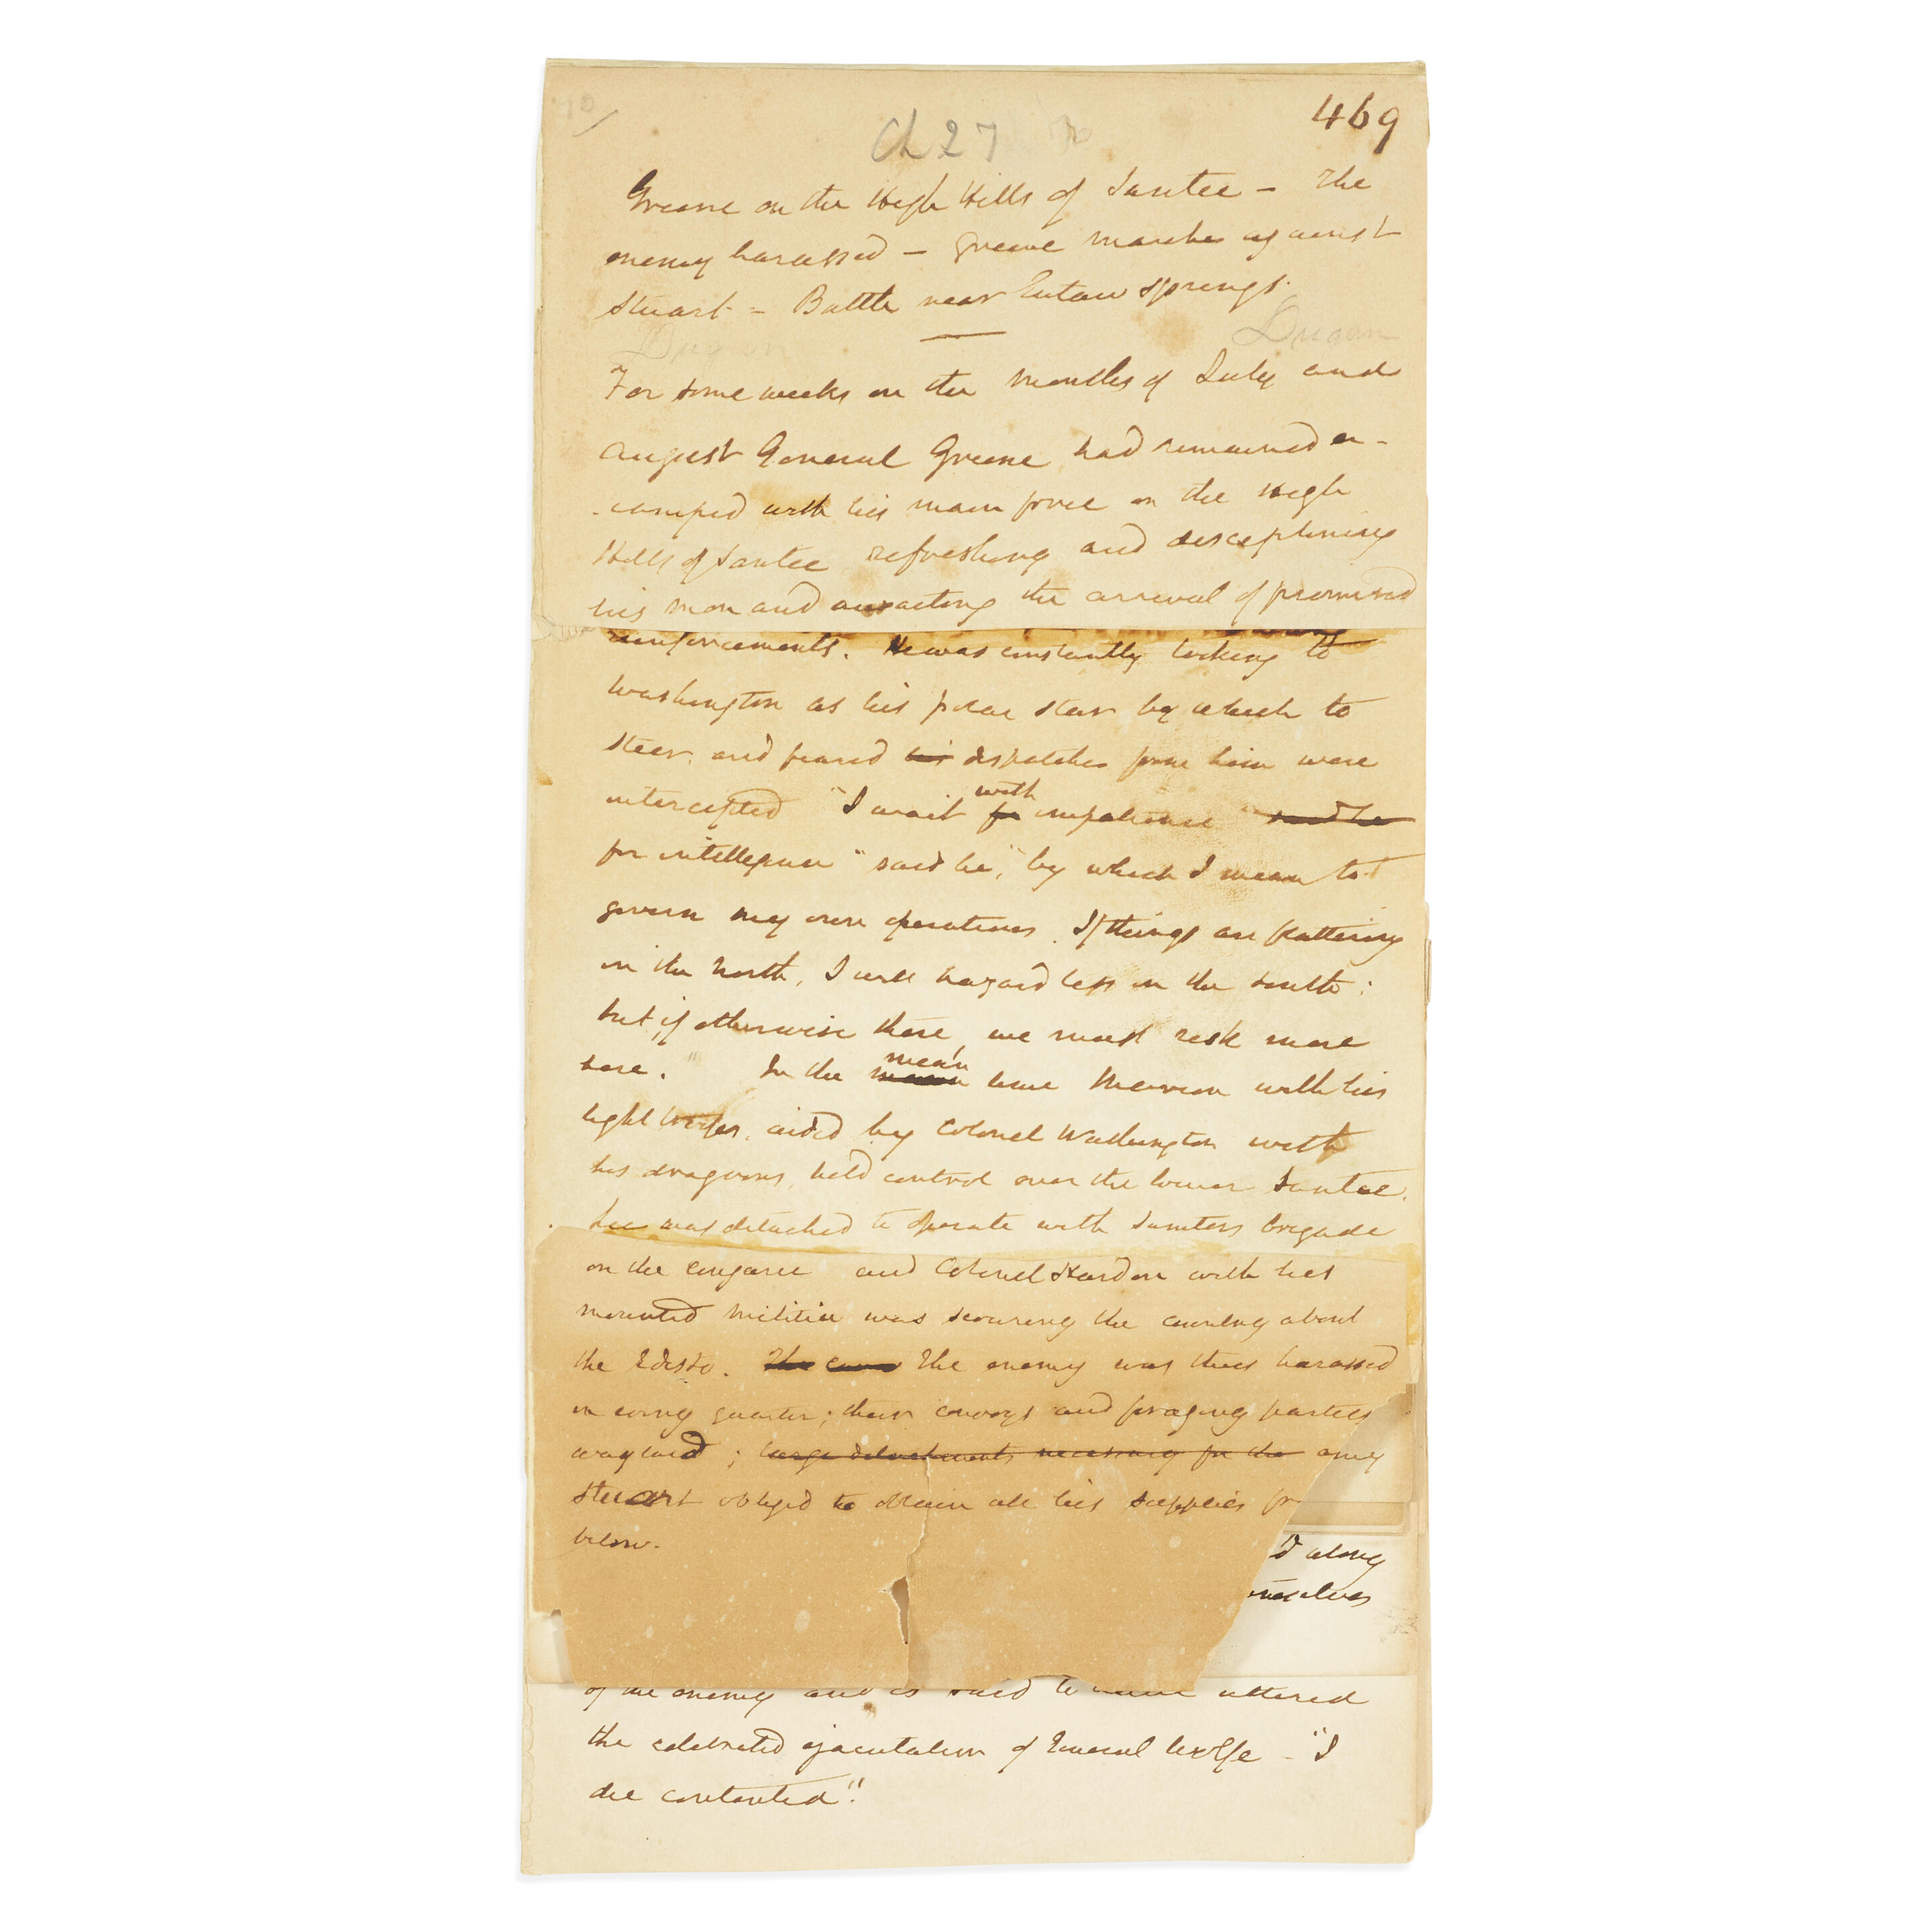 469
Ch 27
Greene on the High Hills of Santee – The
enemy harassed – Greene marches against
Stuart – Battle near Eutaw Springs.
Dugan Dugan
For some weeks in the months of July and
August General Greene had remained en-
-camped with his main force on the High
Hills of Santee refreshing and disciplining
his men and awaiting the arrival of promised
reinforcements. He was constantly looking to
Washington as his polar star by which to
steer, and feared his dispatches from him were
with
intercepted "I wait for impatience" said he
for intelligence" said he, "by which I mean to
govern my own operations. If things are flattering
in the North, I will hazard less in the South;
but, if otherwise there, we must risk more
mean
here." In the time Marion with his
light troops, aided by Colonel Washington with
his dragoons, held control over the lower Santee.
Lee was detached to operate with Sumters brigade
on the Congaree and Colonel Harden with his
mounted militia was scouring the country about
the Edisto. The The enemy was thus harassed
in every quarter; their convoys and foraging parties
waylaid; large detachments necessary for the and
Stuart obliged to obtain all his supplies fr
below.
d along
emselves
of the enemy and is said to have uttered
the celebrated ejaculation of General Wolfe – "I
die contented".